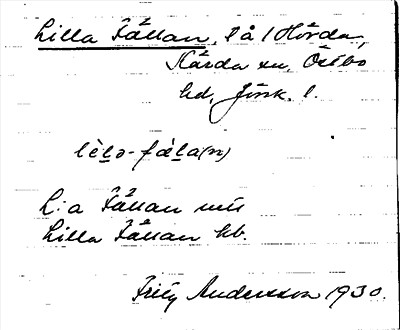 Lilla Fållan, på Hörda,
Kärda sn, Östbo
hd, Jönk. l.
lèlə-fæla(n)
L:a Fållan
Lilla Fållan hb.
Fritz Andersson 1930.